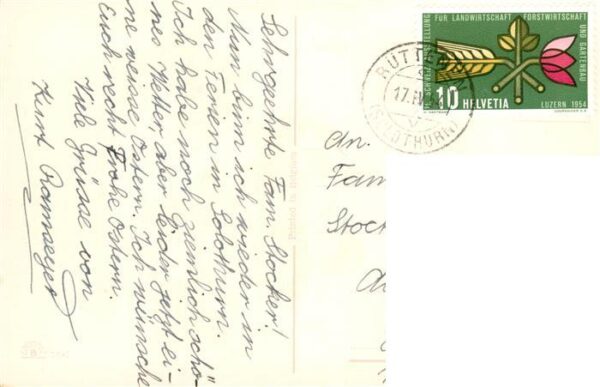 Sehrgeehrte Fam. Stocker!
Nun bin ich wieder in
den Ferien in Solothurn.
Ich habe noch ziemlich schö-
nes Wetter, aber leider jetzt ei-
ne weisse Ostern. Ich wünsche
Euch recht Frohe Ostern.
Viele Grüsse von
Kurt Ramseyer
Printed in Belgium
AUSSTELLUNG FÜR LANDWIRTSCHAFT FORSTWIRTSCHAFT
UND GARTENBAU
10 HELVETIA
LUZERN 1954
(SOLOTHURN)
17.IV.
An.
Fam
Stock